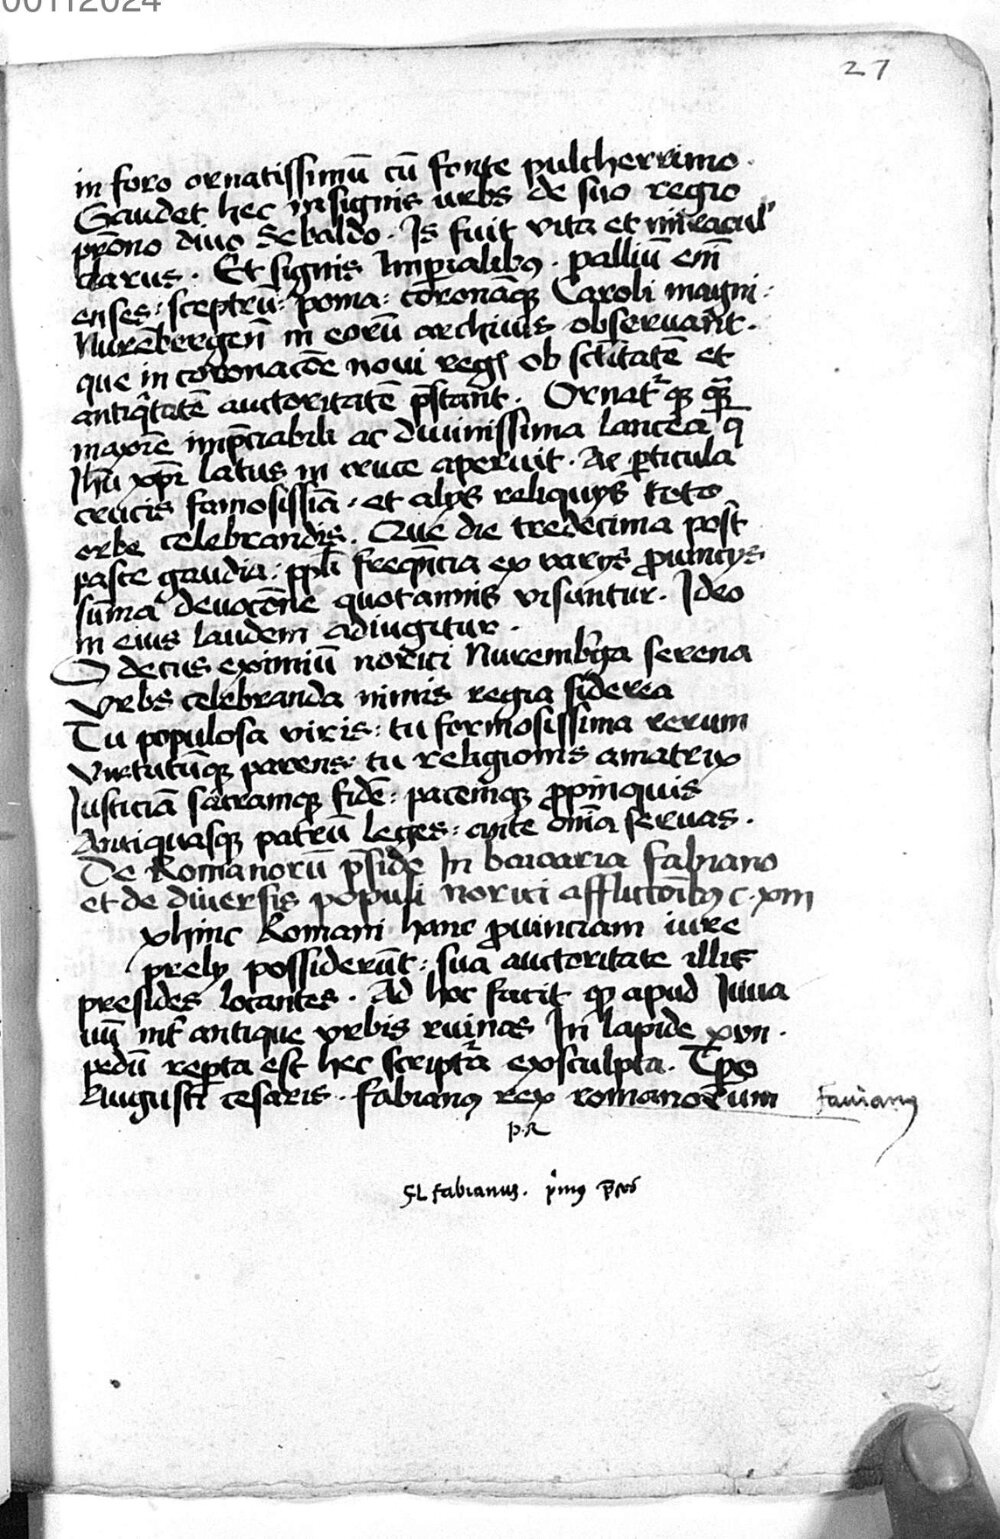 00112024
27
in foro ornatissimū cū fonte pulcherrimo.
Gaudet hec insignis urbs de suo regio
prōno divo Sebaldo. Is fuit vita et miracul'
clarus. Et signis Imperialibꝫ. palliū eni
enses: sceptrū: poma: coronāqꝫ Caroli magni:
Nurēbergeñ in eorū archivis observant.
que in coronacōe novi regꝭ ob sctitatē et
antiqͥtatē auctoritatē p̄stant. Ornatr̄ qꝫ
maxīe imp̄ciabili ac divinissima lancea q̄
Ihū xpī latus in cruce aperuit. Ac p̲ticula
crucis famosissīa. et alijs reliquijs toto
orbe celebrandis. Que die tredecima post
pasce gaudia: pp̄li freq̄ncia ex varijs ꝓvincijs
sum̄a devocōne quotannis visuntur. Ideo
in eius laudem adiūgitur.
O decus eximiū norici Nuremb̄ga serena
Vrbs celebranda nimis regia siderea
Tu populosa viris: tu formosissima rerum
Virtutūqꝫ parens: tu religionis amatrix
Iusticiā sacramqꝫ fidē: pacemqꝫ ꝓpinquis
Antiquasqꝫ patrū leges: cūcte om̄ia servas.
De Romanorū p̄side In bavaria Fabiano
et de diversis populi norici afflictōibꝫ c. xiii
xhinc Romani hanc ꝓvinciam iure
prelij possiderūt: sua auctoritate illis
presides locantes. Ad hoc facit qꝫ apud Iuva
uū int̄ antique vrbis ruinas In lapide xvii.
pedū rep̲ta est hec scriptr̄a exsculpta. Tp̄e
Augusti cesaris. Fabianꝫ rex romanorum
Favianꝫ
p.R
SL fabianus. pͥmꝫ